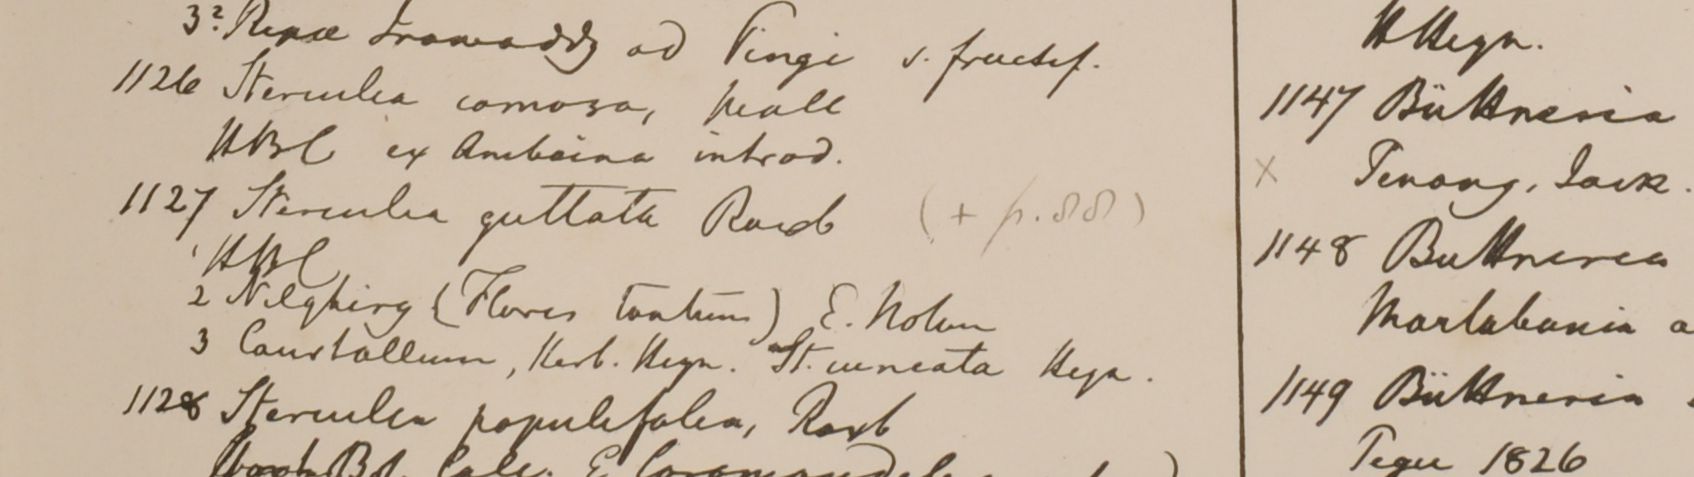 3? Ripae Irawaddy ad Pingi s. fructif.
1126 Sterculia comosa, Wall
HBC ex Amboina introd.
1127 Sterculia guttata Roxb (+ p. 88)
1 HBC
2 Nilghiry (Flores tantum) E. Noton
3 Courtallum, Herb. Heyn. St. cuneata Heyn.
1128 Sterculia populifolia, Roxb
Bot. Calc. E
H Heyn.
1147 Büttneria
x Penang, Jack.
1148 Buttneria
Martabania a
1149 Büttneria
Tegu 1826